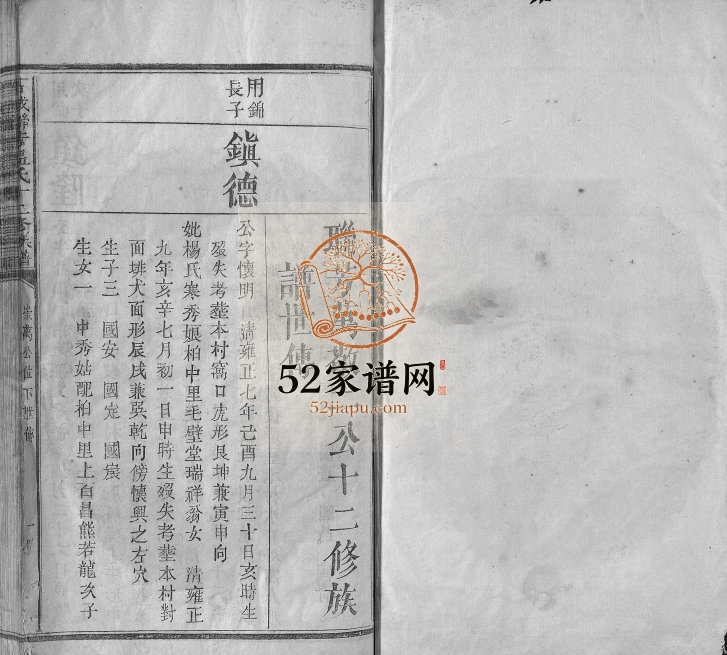 聯
公十二修族
諸世傳
用錦
長子
鎮德
公字懷明 清雍正七年己酉九月三十日亥時生
歿失考塟本村窩口虎形艮坤兼寅申向
妣楊氏寒秀娘柏中里毛壁堂瑞祥翁女 清雍正
九年亥辛七月初一日申時生歿失考塟本村對
面排犬面形辰戌兼巽乾向傍懷興之左穴
生子三 國安 國定 國宸
生女一 申秀姑配柏中里上百昌熊若龍次子
52家谱网
52jiapu.com